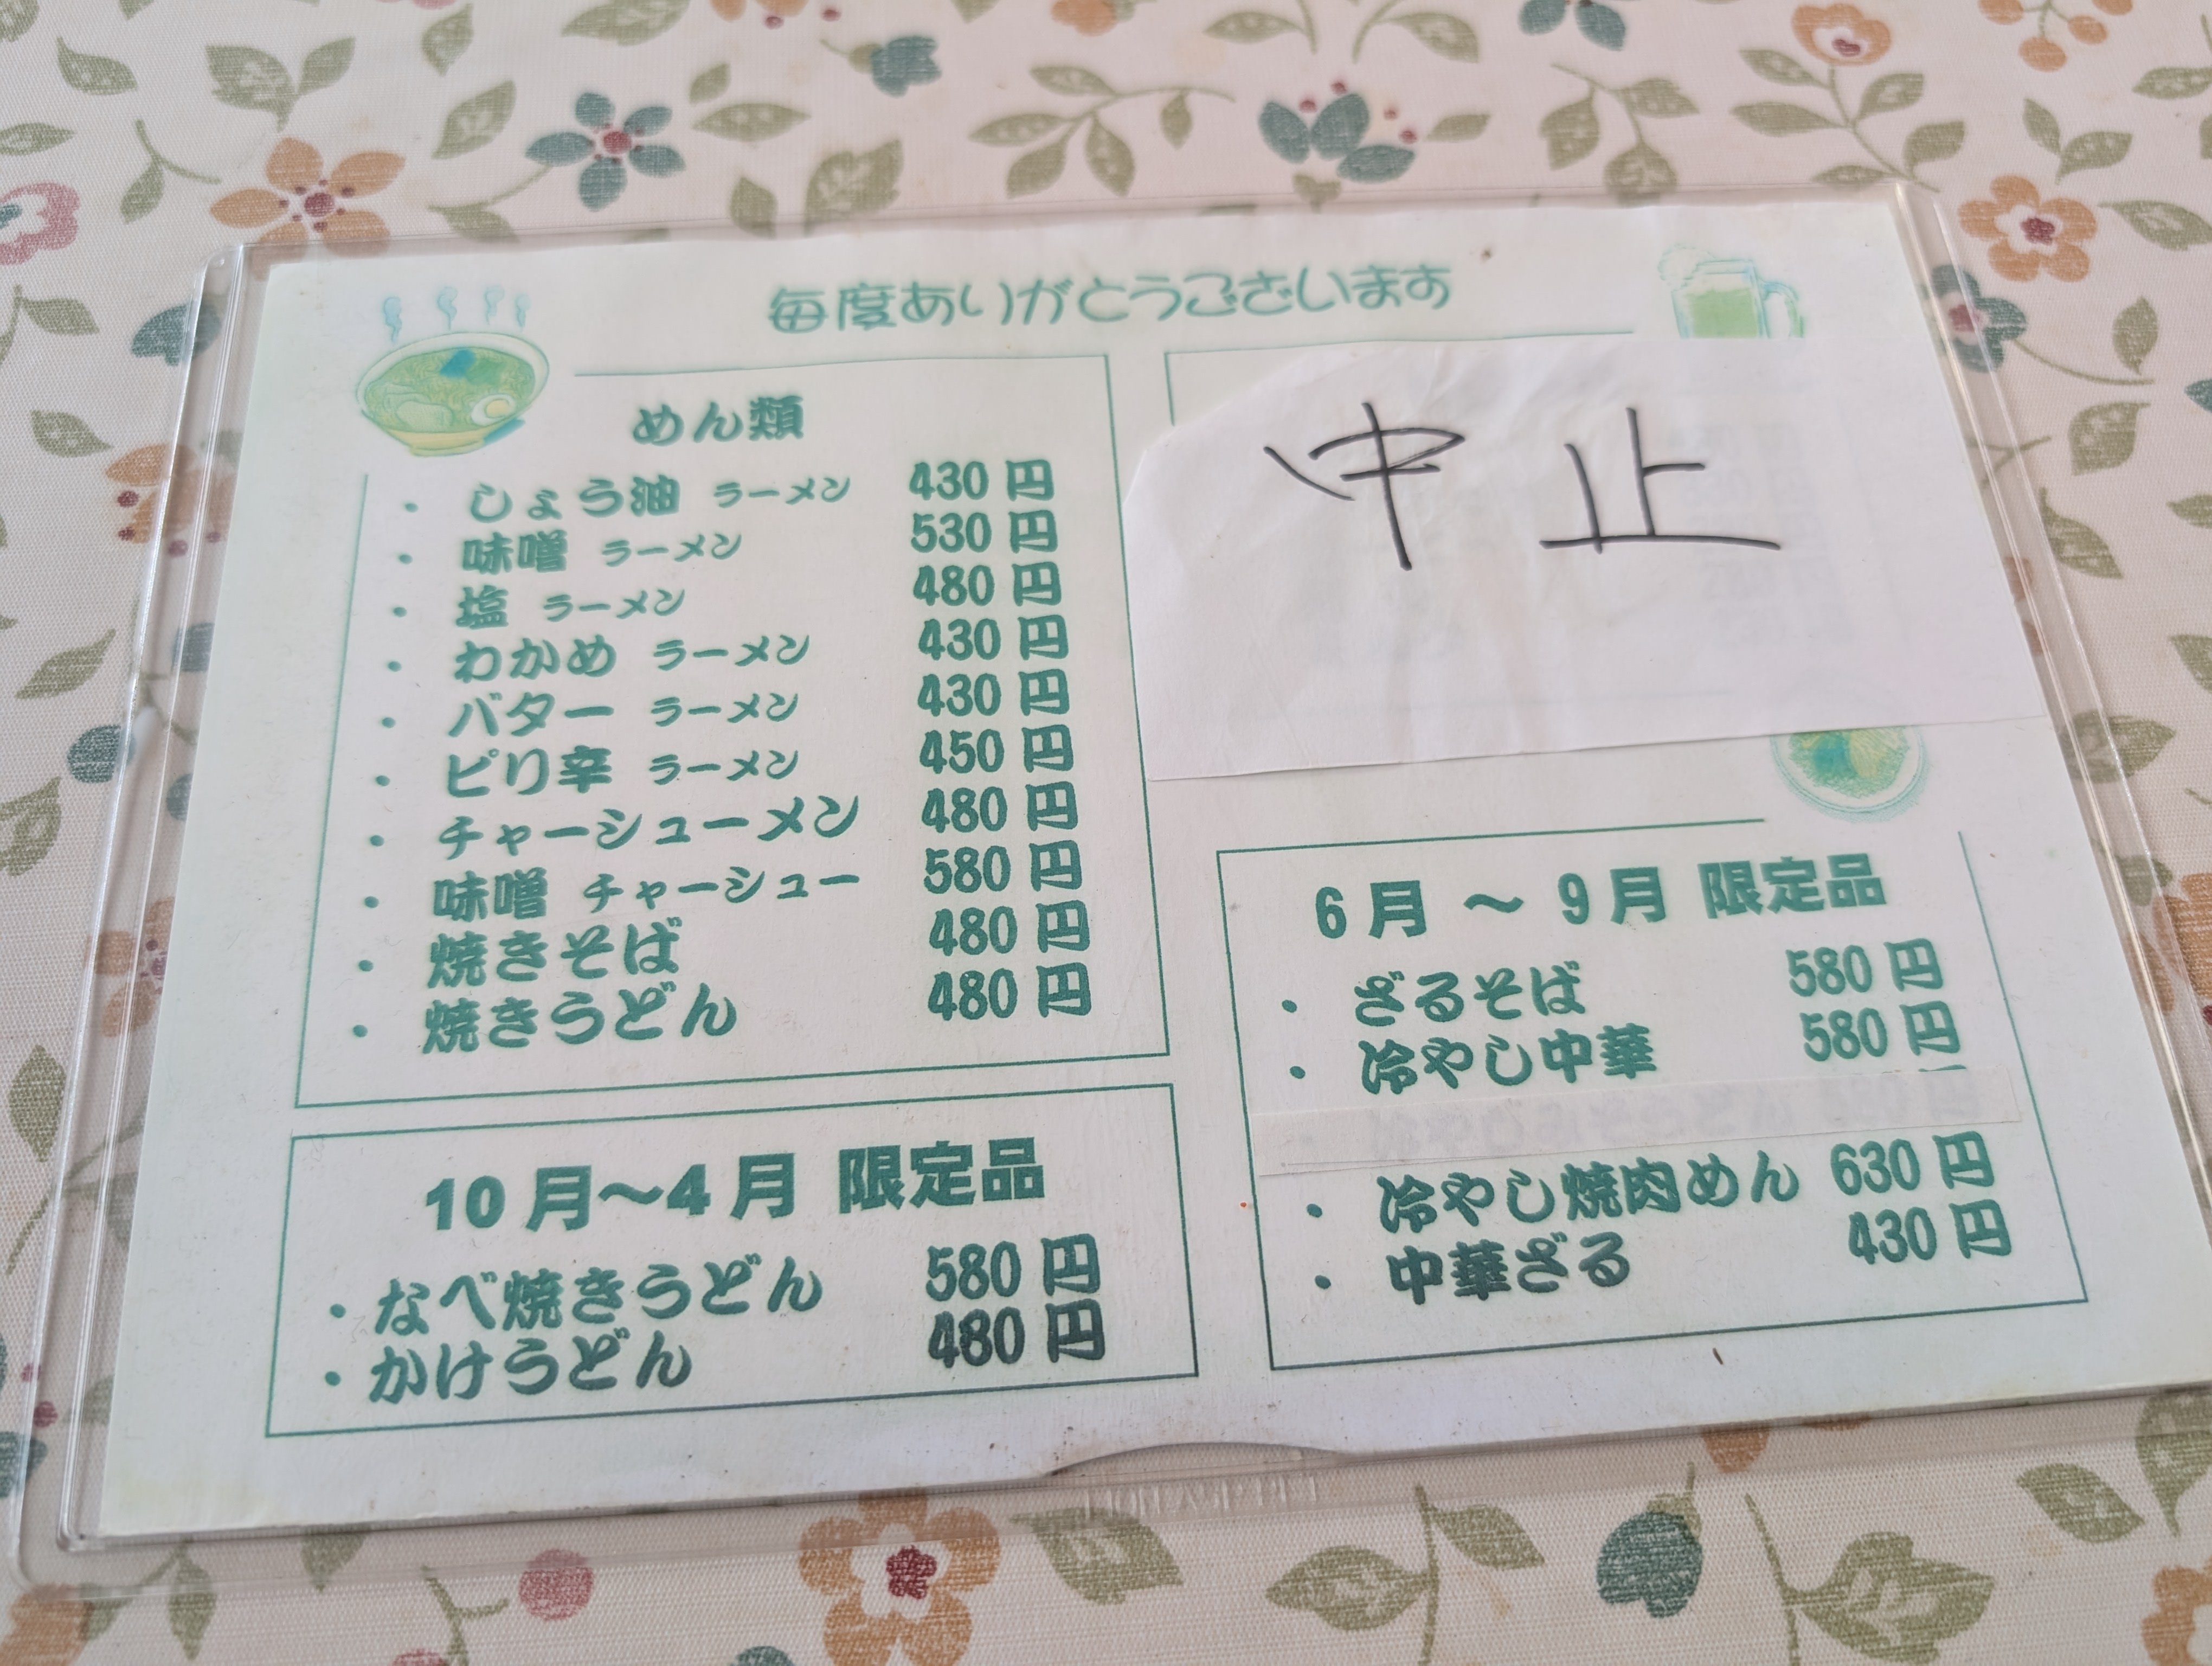 毎度ありがとうございます
めん類
・ しょう油 ラーメン 430 円
・ 味噌 ラーメン 530 円
・ 塩 ラーメン 480 円
・ わかめ ラーメン 430 円
・ バター ラーメン 430 円
・ ピリ辛 ラーメン 450 円
・ チャーシューメン 480 円
・ 味噌 チャーシュー 580 円
・ 焼きそば 480 円
・ 焼きうどん 480 円
10 月～4 月 限定品
・なべ焼きうどん 580 円
・かけうどん 480 円
中止
6 月 ～ 9 月 限定品
・ ざるそば 580 円
・ 冷やし中華 580 円
・ 冷やし焼肉めん 630 円
・ 中華ざる 430 円